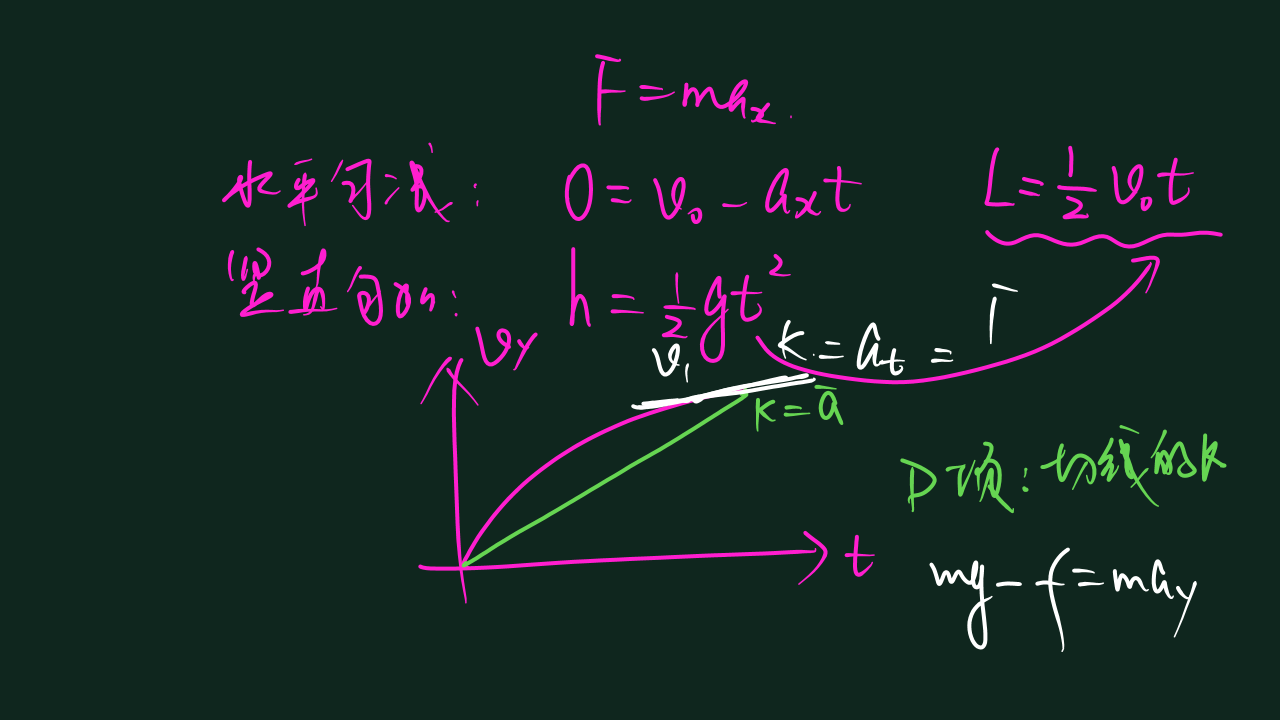 F=ma_x.
水平匀减: 0=v₀-a_xt L=½v₀t
竖直匀加: h=½gt²
v_y
v₁ k=a_t=
k=a̅
D项:切线的k
t
mg-f=ma_y